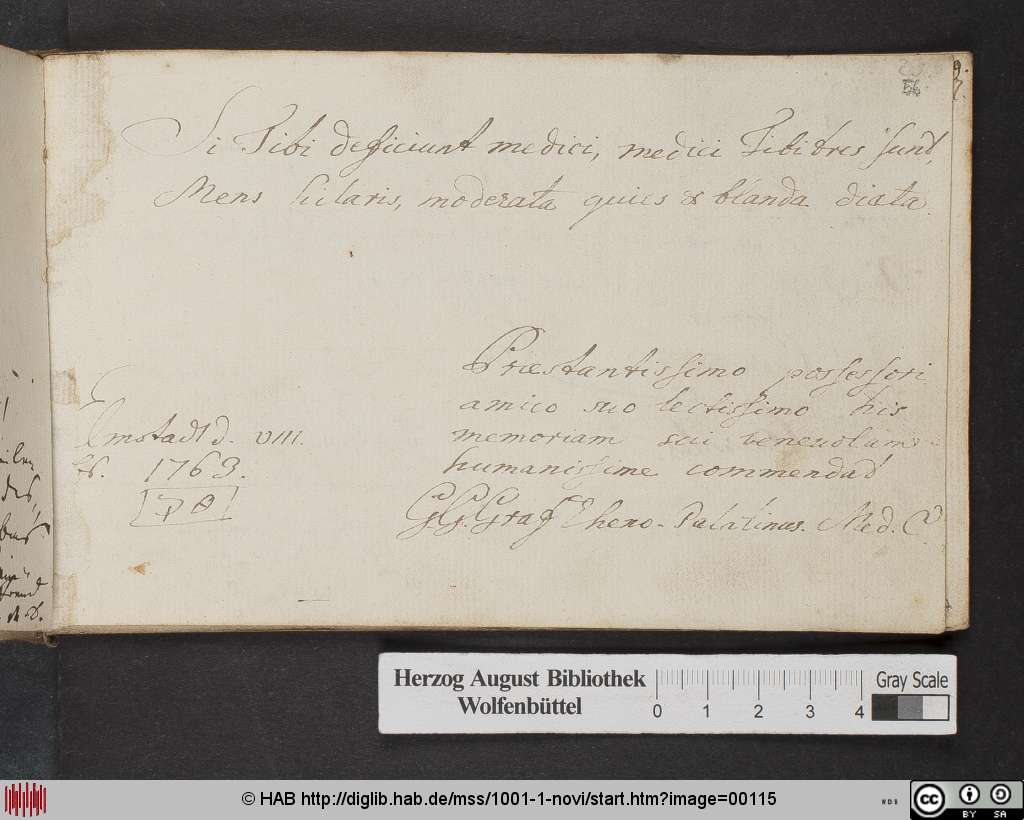 56
Si Tibi deficiunt medici, medici Tibi tres sunt,
Mens hilaris, moderata quies & blanda diata.
Præstantissimo possessori
amico suo lectissimo his
memoriam sui benevolam
humanissime commendat
G. G. Graff Rheno-Palatinus. Med. C.
Elmstadt d. VIII.
1763.
Herzog August Bibliothek
Wolfenbüttel
0 1 2 3 4
Gray Scale
© HAB http://diglib.hab.de/mss/1001-1-novi/start.htm?image=00115
cc BY SA